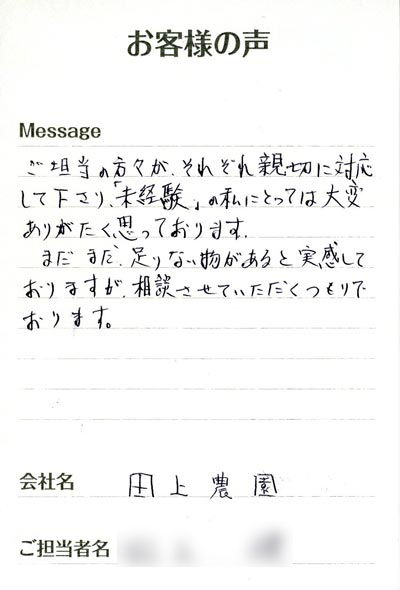 お客様の声
Message
ご担当の方々が、それぞれ親切に対応
して下さり、「未経験」の私にとっては大変
ありがたく思っております。
まだまだ、足りない物があると実感して
おりますが、相談させていただくつもりで
おります。
会社名 田上農園
ご担当者名